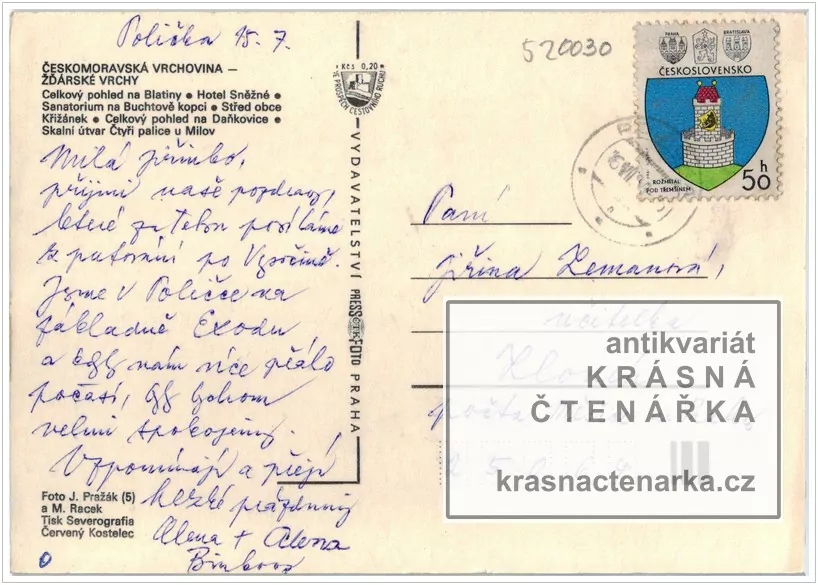 Polička 15. 7.
520030
ČESKOMORAVSKÁ VRCHOVINA –
ŽĎÁRSKÉ VRCHY
Celkový pohled na Blatiny • Hotel Sněžné •
Sanatorium na Buchtově kopci • Střed obce
Křižánek • Celkový pohled na Daňkovice •
Skalní útvar Čtyři palice u Milov
Milá
přijmi naše pozdravy,
které za Tebou posíláme
z putování po Vysočině.
Jsme v Poličce na
základně Exodu
a kdyby nám více přálo
počasí, byli bychom
velmi spokojeni.
Vzpomínají a přejí
hezké prázdniny
Alena + Alena
Foto J. Pražák (5)
a M. Racek
Tisk Severografia
Červený Kostelec
Kčs 0,20
VE PROSPĚCH CESTOVNÍHO RUCHU
VYDAVATELSTVÍ PRESSFOTO PRAHA
ČTK
PRAHA
BRATISLAVA
ČESKOSLOVENSKO
ROŽMITÁL
POD TŘEMŠÍNEM
50 h
Paní
Jiřina Zemanová,
učitelka
antikvariát
KRÁSNÁ
ČTENÁŘKA
krasnactenarka.cz